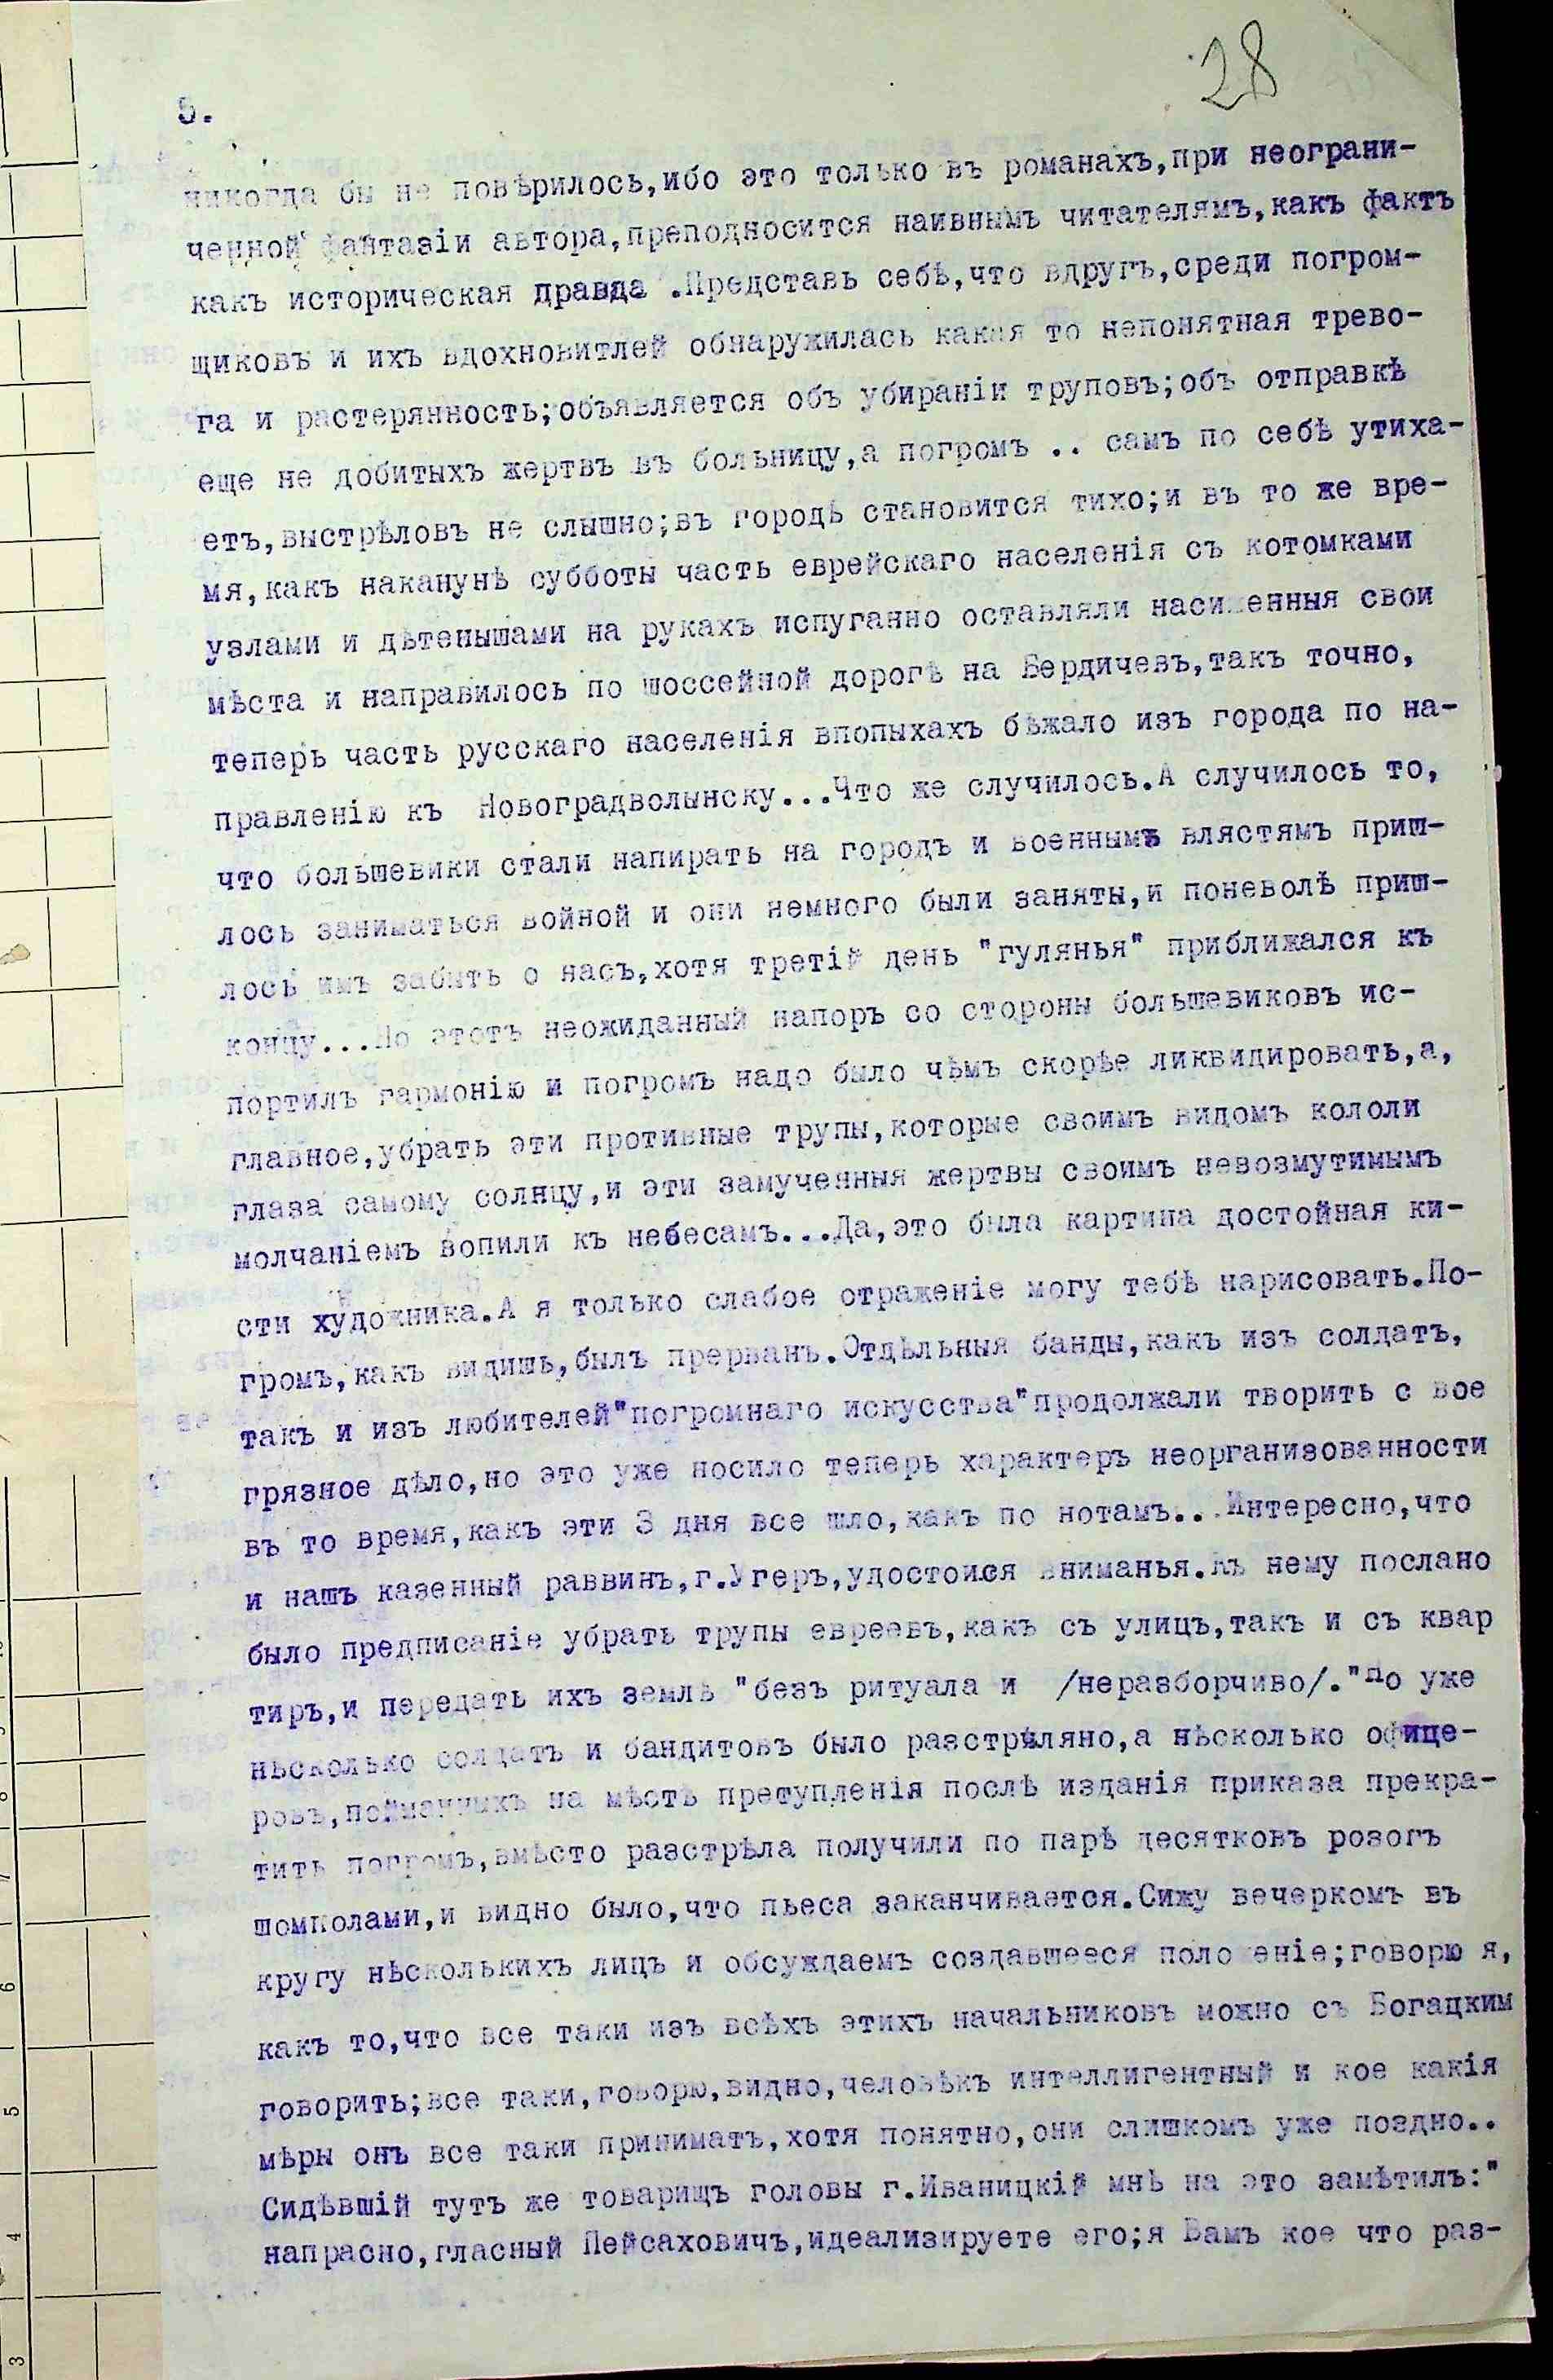 28
5.
никогда бы не повѣрилось,ибо это только въ романахъ,при неограни-
ченной фантазіи автора,преподносится наивнымъ читателямъ,какъ фактъ
какъ историческая правда .Представь себѣ,что вдругъ,среди погром-
щиковъ и ихъ вдохновитлей обнаружилась какая то непонятная трево-
га и растерянность;объявляется объ убираніи труповъ;объ отправкѣ
еще не добитыхъ жертвъ въ больницу,а погромъ .. самъ по себѣ утиха-
етъ,выстрѣловъ не слышно;въ городѣ становится тихо;и въ то же вре-
мя,какъ наканунѣ субботы часть еврейскаго населенія съ котомками
узлами и дѣтенышами на рукахъ испуганно оставляли насиженныя свои
мѣста и направилось по шоссейной дорогѣ на Бердичевъ,такъ точно,
теперь часть русскаго населенія впопыхахъ бѣжало изъ города по на-
правленію къ Новоградволынску...Что же случилось.А случилось то,
что большевики стали напирать на городъ и военнымъ влястямъ приш-
лось заниматься войной и они немного были заняты,и поневолѣ приш-
лось имъ забыть о насъ,хотя третій день "гулянья" приближался къ
концу...Но этотъ неожиданный напоръ со стороны большевиковъ ис-
портилъ гармонію и погромъ надо было чѣмъ скорѣе ликвидировать,а,
главное,убрать эти противные трупы,которые своимъ видомъ кололи
глаза самому солнцу,и эти замученныя жертвы своимъ невозмутимымъ
молчаніемъ вопили къ небесамъ...Да,это была картина достойная ки-
сти художника.А я только слабое отраженіе могу тебѣ нарисовать.По-
громъ,какъ видишь,былъ прерванъ.Отдѣльныя банды,какъ изъ солдатъ,
такъ и изъ любителей"погромнаго искусства"продолжали творить с вое
грязное дѣло,но это уже носило теперь характеръ неорганизованности
въ то время,какъ эти 3 дня все шло,какъ по нотамъ...Интересно,что
и нашъ казенный раввинъ,г.Угеръ,удостоился вниманья.Къ нему послано
было предписаніе убрать трупы евреевъ,какъ съ улицъ,такъ и съ квар
тиръ,и передать ихъ землѣ "безъ ритуала и /неразборчиво/."По уже
нѣсколько солдатъ и бандитовъ было разстрѣляно,а нѣсколько офице-
ровъ,пойманныхъ на мѣстѣ претупленія послѣ изданія приказа прекра-
тить погромъ,вмѣсто разстрѣла получили по парѣ десятковъ розогъ
шомполами,и видно было,что пьеса заканчивается.Сижу вечеркомъ въ
кругу нѣсколькихъ лицъ и обсуждаемъ создавшееся положеніе;говорю я,
какъ то,что все таки изъ всѣхъ этихъ начальниковъ можно съ Богацким
говорить;все таки,говорю,видно,человѣкъ интеллигентный и кое какія
мѣры онъ все таки приниматъ,хотя понятно,они слишкомъ уже поздно..
Сидѣвшій тутъ же товарищъ головы г.Иваницкій мнѣ на это замѣтилъ:"
напрасно,гласный Пейсаховичъ,идеализируете его;я Вамъ кое что раз-